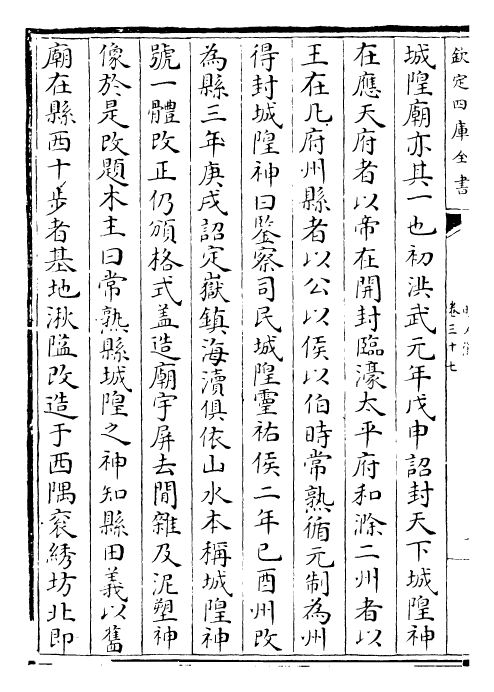 欽定四庫全書
卷三十七
城隍廟亦其一也初洪武元年戊申詔封天下城隍神
在應天府者以帝在開封臨濠太平府和滁二州者以
王在凡府州縣者以公以侯以伯時常熟循元制為州
得封城隍神曰鑒察司民城隍靈祐侯二年己酉州改
為縣三年庚戌詔定嶽鎮海瀆俱依山水本稱城隍神
號一體改正仍頒格式盖造廟宇屏去閒雜及泥塑神
像於是改題木主曰常熟縣城隍之神知縣田義以舊
廟在縣西十步者基地湫隘改造于西隅衮綉坊北即